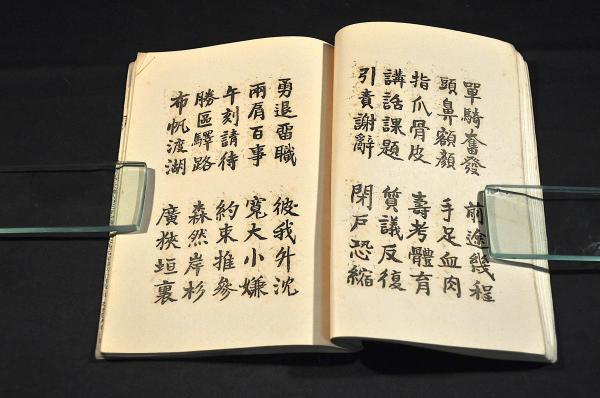 單騎奮發 前途幾程
頭鼻額顏 手足血肉
指爪骨皮 壽考體育
講話課題 質議反復
引責謝辭 閉戸恐縮
勇退畱職 彼我外沈
兩肩百事 寬大小嫌
午刻請待 約束推參
勝區驛路 森然岸杉
布帆渡湖 廣狹垣裏